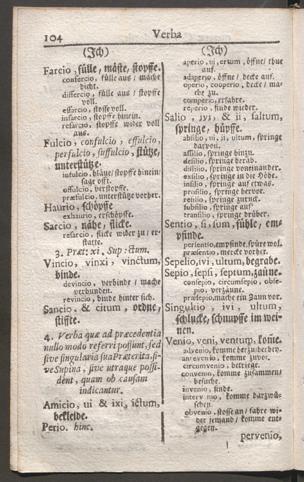 104
Verba
(Jch)
Farcio, fülle, mäste, stopffe.
confercio, fülle aus / mache
dicht.
differcio, fülle aus / stopffe
voll.
effarcio, stosse voll.
infarcio, stopffe hinein.
refarcio, stopffe wider voll
aus.
Fulcio, confulcio, effulcio,
perfulcio, suffulcio, stütze,
unterstütze.
infulcio, stopffe hinein
offulcio, verstopffe.
præfulcio, unterstütze vorher.
Haurio, schöpffe
exhaurio, erschöpffe.
Sarcio, nähe, flicke.
resarcio, flicke wider zu / er-
statte.
3. Præt: xi, Sup: ctum.
Vincio, vinxi, vinctum,
binde.
devincio, verbinde / mache
verbunden.
revincio, binde hinter sich.
Sancio, & citum, ordne,
stiffte.
4. Verba quæ ad præcedentia
nullo modo referri possunt, sed
sive singularia sua Præterita, si-
ve Supina, sive utraque possi-
dent, quam ob causam
indicantur.
Amicio, ui & ixi, ictum,
bekleide.
Perio. hinc.
(Jch)
aperio, ui, ertum, öffne / thue
auf.
adaperio, öffne / decke auf.
operio, cooperio, decke / ma-
che zu.
comperio, erfahre.
reperio, finde wieder.
Salio, ivi, & ii, saltum,
springe, hüpffe.
absilio, ui, ii, ultum, springe
darvon.
assilio, springe hinzu.
desilio, springe herab.
dissilio, springe voneinander.
exsilio, springe in die Höhe.
insilio, springe auf etwas.
prosilio, springe hervor.
resilio, springe zurück.
subsilio, springe auf.
transilio, springe drüber.
Sentio, si, sum, fühle, em-
pfinde.
persentio, empfinde, spüre wol.
præsentio, mercke vorher.
Sepelio, ivi, ultum, begrabe.
Sepio, sepsi, septum, zäune.
consepio, circumsepio, obse-
pio, verzäune.
præsepio, mache ein Zaun vor.
Singultio, ivi, ultum,
schlucke, schnupffe im wei-
nen.
Venio, veni, ventum, kome.
advenio, komme herzu / herbey.
antevenio, komme zuvor.
circumvenio, betriege.
convenio, komme zusammen /
besuche.
invenio, finde.
intervenio, komme darzwi-
schen.
obvenio, stosse an / fahre wi-
der jemand / komme ent-
gegen.
pervenio,